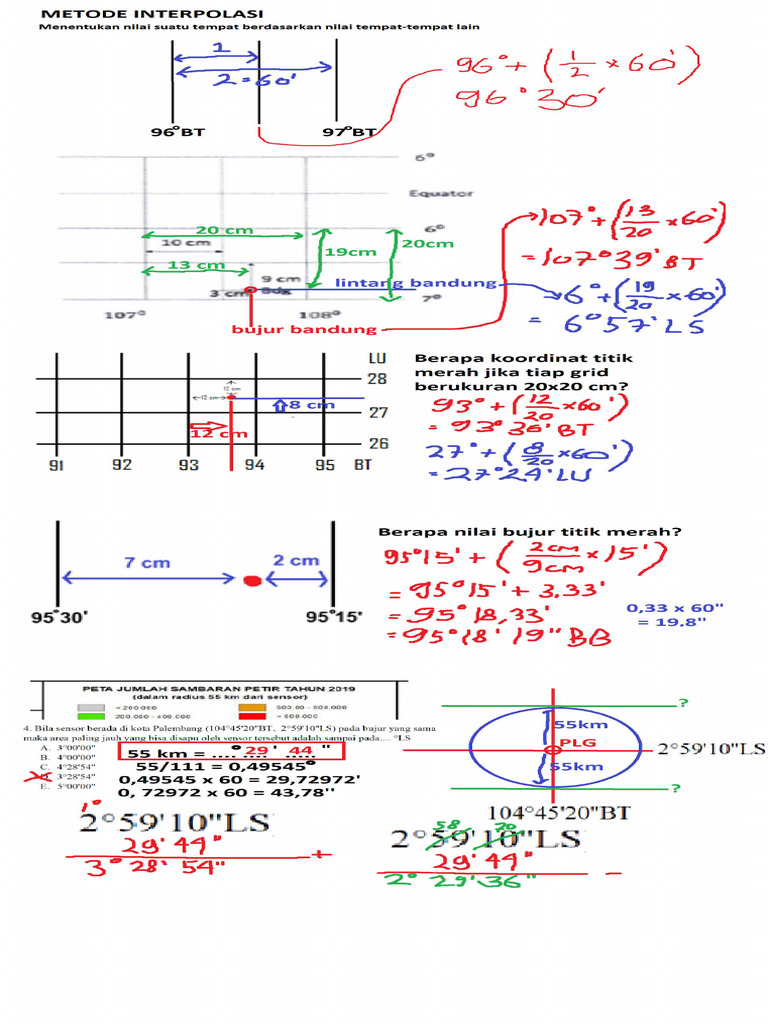 METODE INTERPOLASI
Menentukan nilai suatu tempat berdasarkan nilai tempat-tempat lain
1
2 = 60'
96°BT
97°BT
96° + (1/2 × 60')
96° 30'
6°
Equator
20 cm
6°
10 cm
19cm
20cm
13 cm
9 cm
lintang bandung
3 cm
Bdg
7°
107°
108°
bujur bandung
107° + (13/20 × 60'
= 107° 39' BT
6° + (19/20 × 60')
= 6° 57' LS
LU
28
12 cm
12 cm
8 cm
27
12 cm
26
91
92
93
94
95
BT
Berapa koordinat titik
merah jika tiap grid
berukuran 20x20 cm?
93° + (12/20 × 60')
= 93° 36' BT
27° + (8/20 × 60')
= 27° 24' LU
7 cm
2 cm
95°30'
95°15'
Berapa nilai bujur titik merah?
95°15' + (2cm/9cm × 15')
= 95°15' + 3,33'
= 95°18,33'
= 95°18' 19" BB
0,33 x 60"
= 19.8"
PETA JUMLAH SAMBARAN PETIR TAHUN 2019
(dalam radius 55 km dari sensor)
< 200.000
200.000 - 400.000
> 600.000
4. Bila sensor berada di kota Palembang (104°45'20"BT, 2°59'10"LS) pada bujur yang sama
maka area paling jauh yang bisa disapu oleh sensor tersebut adalah sampai pada.... °LS
A. 3°00'00"
B. 4°00'00"
C. 4°28'54"
D. 3°28'54"
E. 5°00'00"
X
55 km = .... ° 29 ' 44 "
55/111 = 0,49545°
0,49545 x 60 = 29,72972'
0, 72972 x 60 = 43,78"
?
55km
PLG
2°59'10"LS
55km
?
104°45'20"BT
1°
2°59'10"LS
29' 44"
+
3° 28' 54"
58 70
2°59'10"LS
29' 44"
−
2° 29' 36"